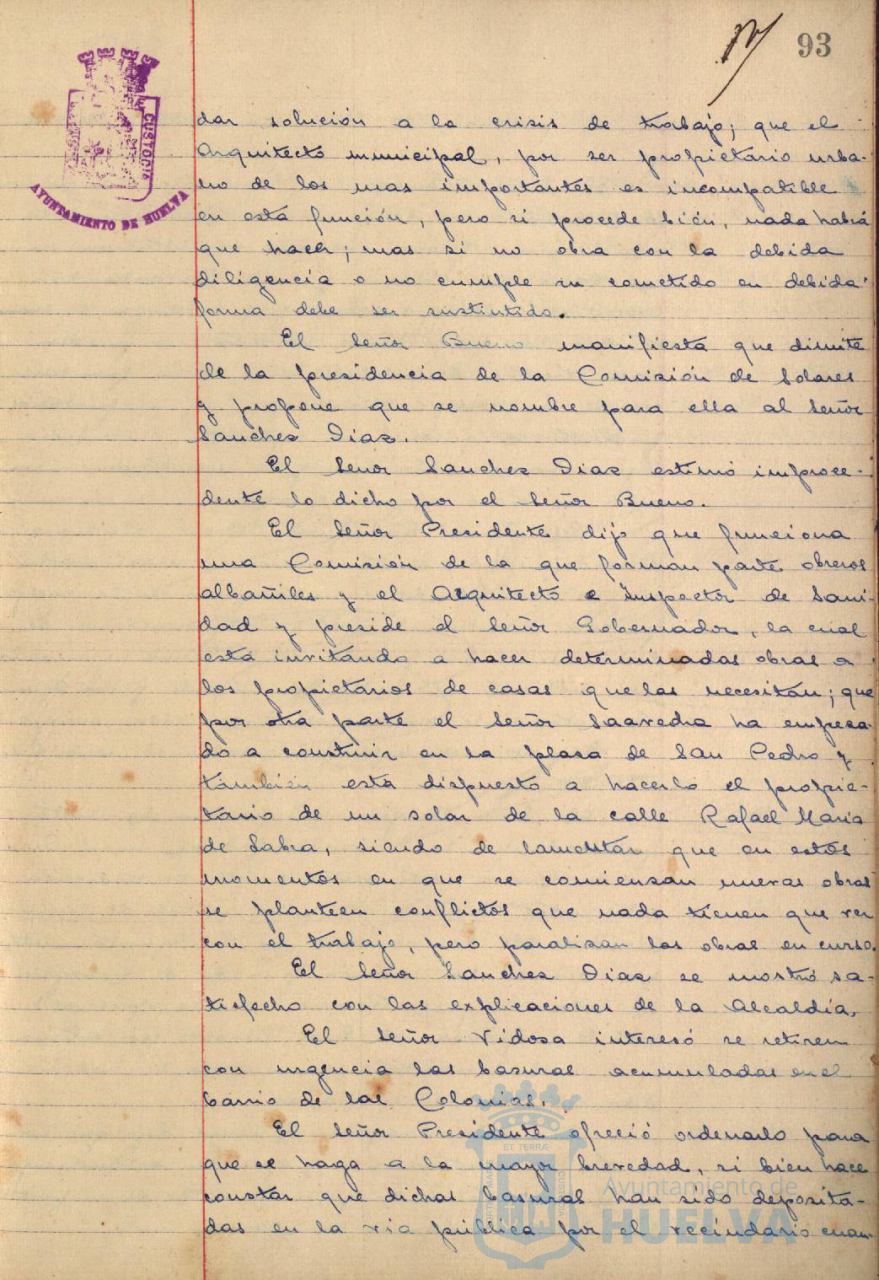 93
CUSTODIA
AYUNTAMIENTO DE HUELVA
dar solución a la crisis de trabajo; que el
Arquitecto municipal, por ser propietario urba-
no de los mas importantes es incompatible
en esta función, pero si procede bién, nada habrá
que hacer; mas si no obra con la debida
diligencia o no cumple su cometido en debida
forma debe ser sustituido.
El Señor Bueno manifiesta que dimite
de la presidencia de la Comisión de Solares
y propone que se nombre para ella al Señor
Sanchez Diaz.
El Señor Sanchez Diaz estimó improce-
dente lo dicho por el Señor Bueno.
El Señor Presidente dijo que funciona
una Comisión de la que forman parte obreros
albañiles y el Arquitecto e Inspector de Sani-
dad y preside el Señor Gobernador, la cual
está invitando a hacer determinadas obras a
los propietarios de casas que las necesitan; que
por otra parte el Señor Saavedra ha empeza-
do a construir en la plaza de San Pedro y
también está dispuesto a hacerlo el propie-
tario de un solar de la calle Rafael Maria
de Labra, siendo de lamentar que en estos
momentos en que se comienzan nuevas obras
se planteen conflictos que nada tienen que ver
con el trabajo, pero paralizan las obras en curso.
El Señor Sanchez Diaz se mostró sa-
tisfecho con las explicaciones de la Alcaldía.
El Señor Vidosa interesó se retiren
con urgencia las basuras acumuladas en el
barrio de las Colonias.
El Señor Presidente ofreció ordenarlo para
que se haga a la mayor brevedad, si bien hace
constar que dichas basuras han sido deposita-
das en la via pública por el vecindario cuan-
Ayuntamiento de
HUELVA